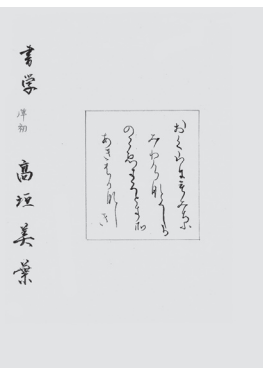 おく山にもみちふ
みわけ那くしか
のこ恵きくとき所
あきはか那しき
書学 準初 高垣美葉